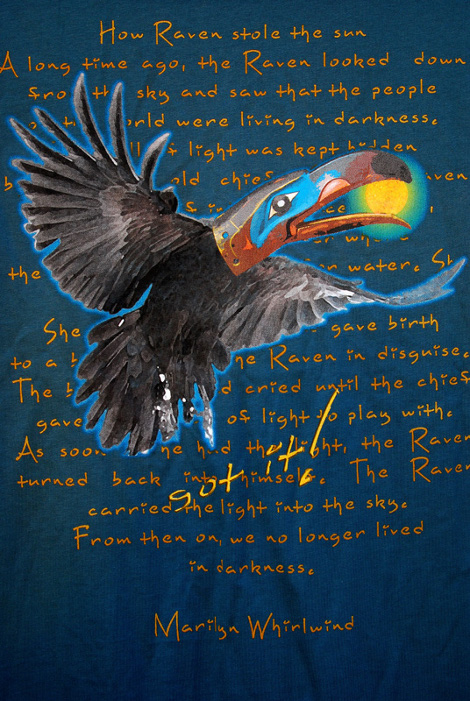 How Raven stole the sun
A long time ago, the Raven looked down
from the sky and saw that the people
world were living in darkness.
of light was kept hidden
old chief
the water. S
She gave birth
to a Raven in disguise.
The cried until the chief
gave of light to play with.
As soon he had the light, the Raven
turned back into himself. The Raven
carried the light into the sky.
From then on, we no longer lived
in darkness.
got it!
Marilyn Whirlwind